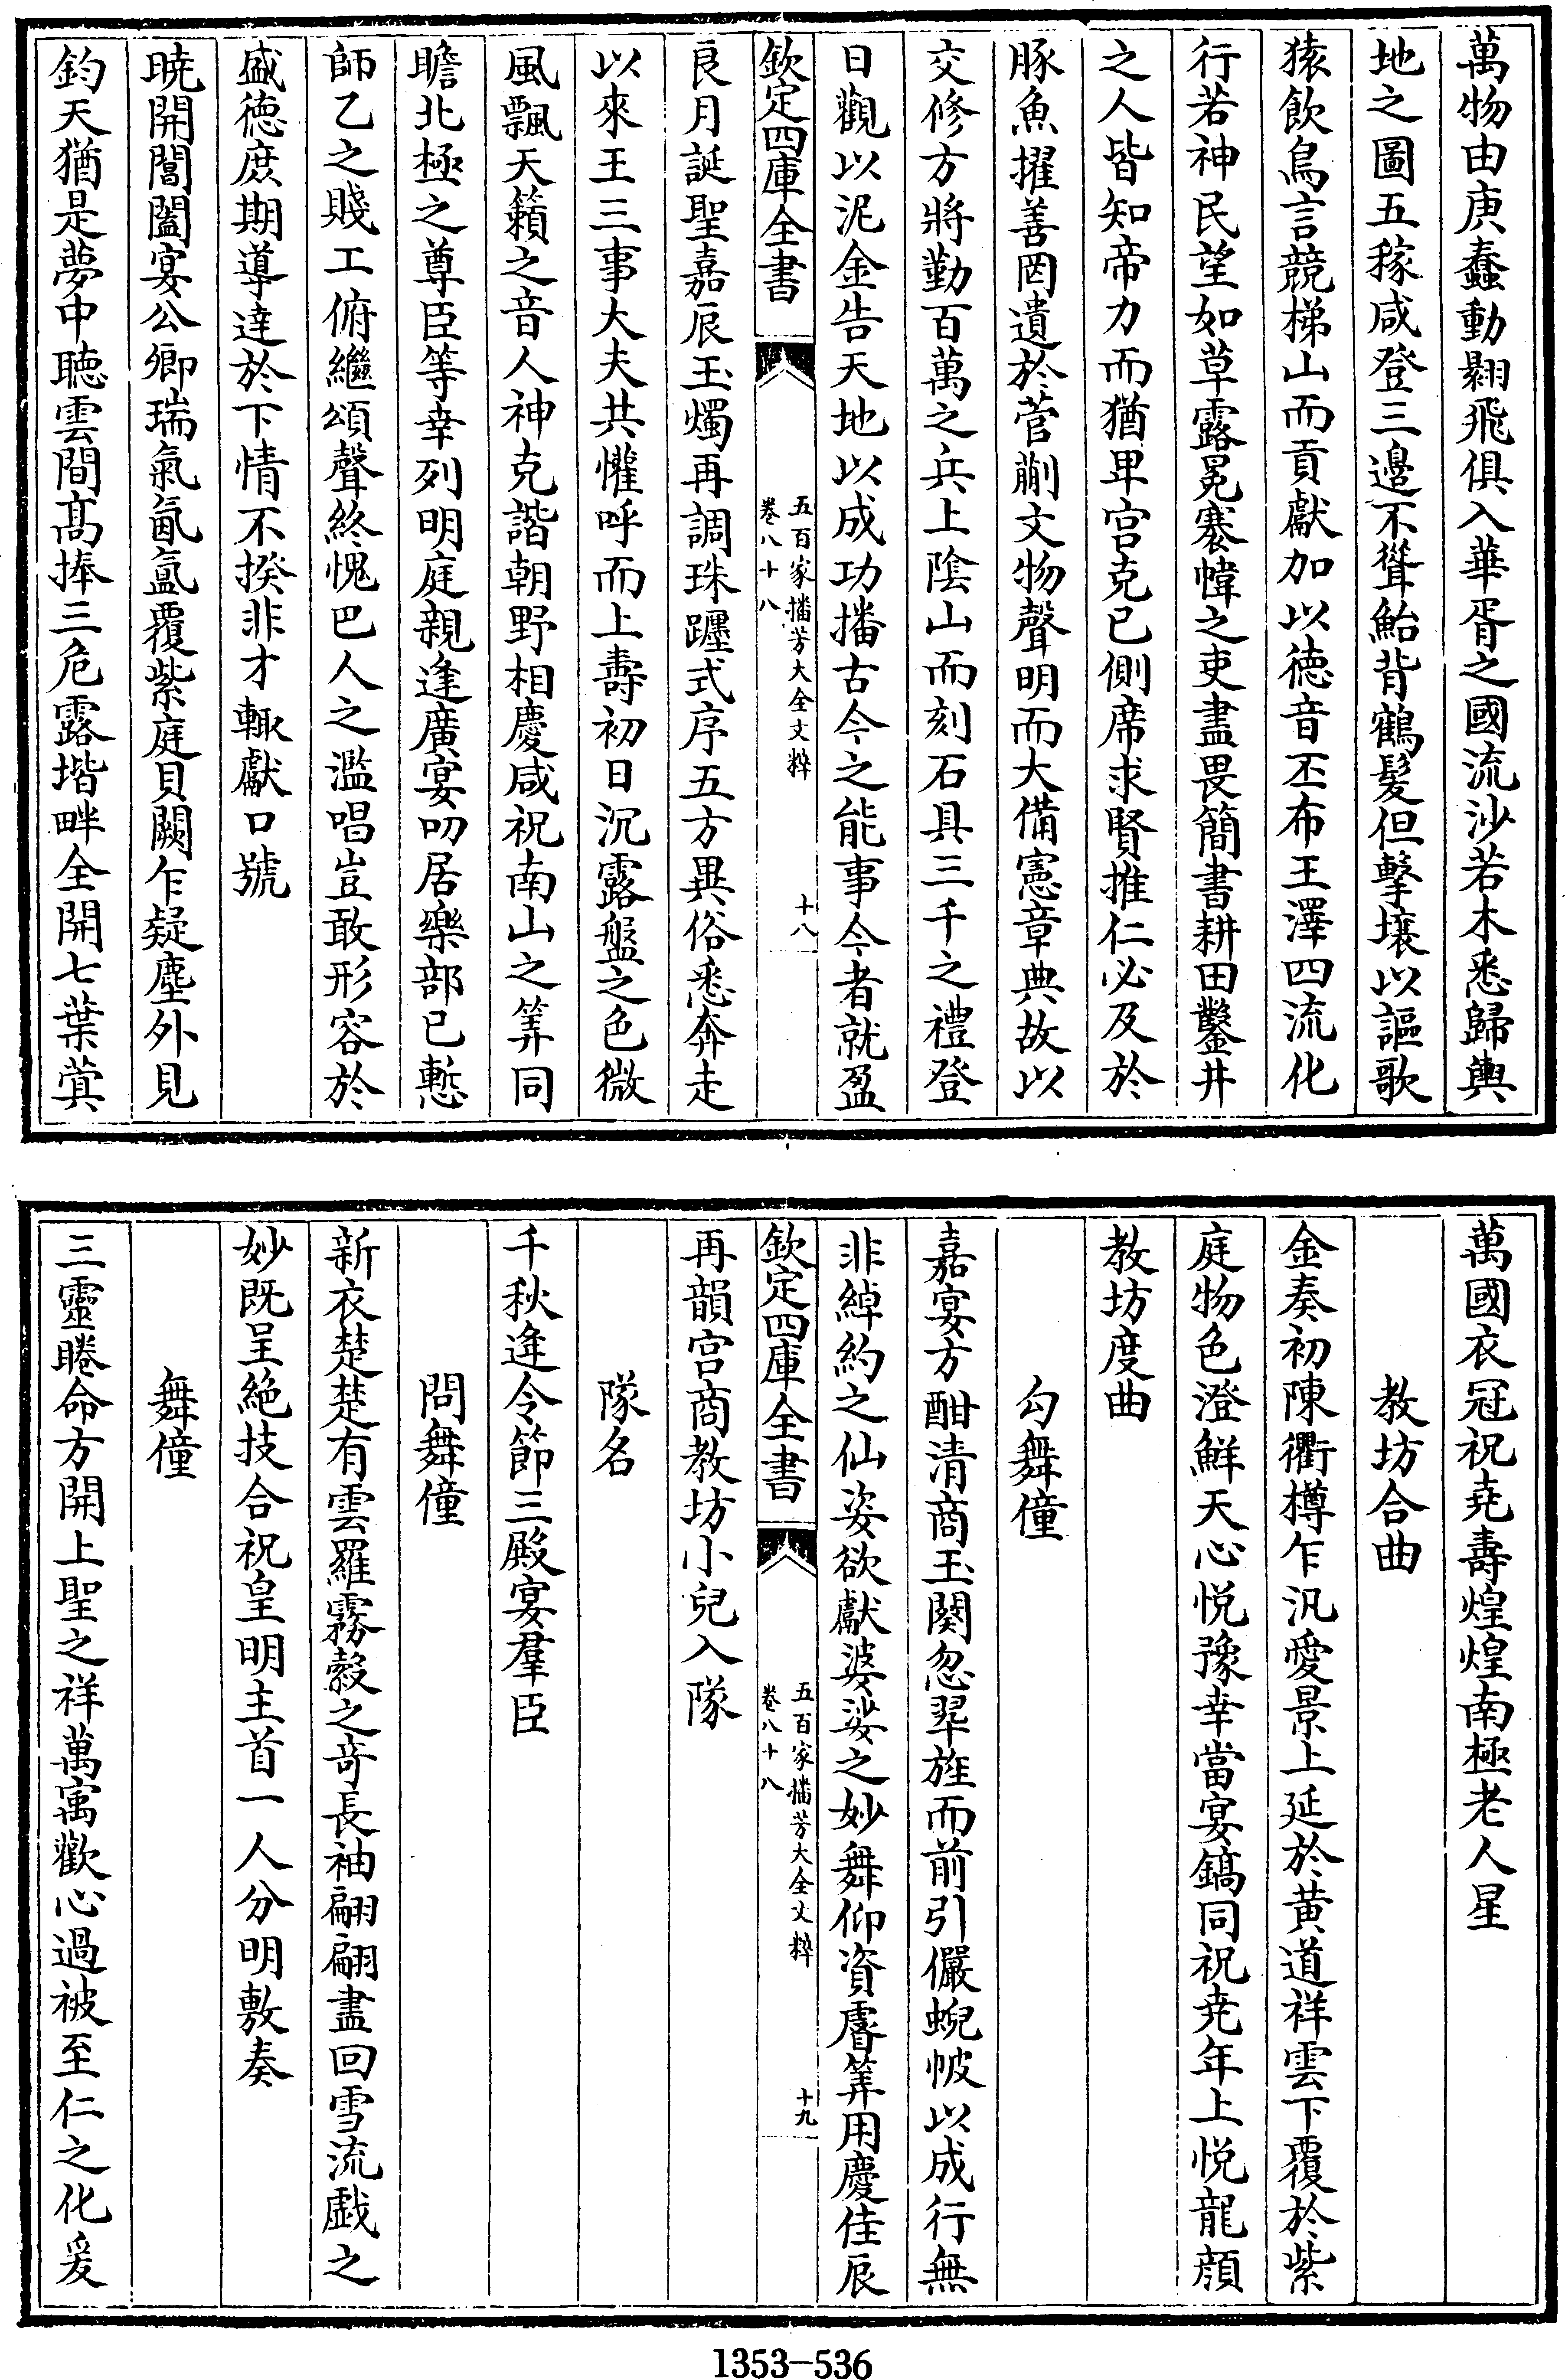 萬物由庚蠢動翾飛俱入華胥之國流沙若木悉歸輿
地之圖五稼咸登三邊不聳鮐背鶴髪但擊壤以謳歌
猿飲鳥言競梯山而貢獻加以徳音丕布王澤四流化
行若神民望如草露冕褰幃之吏盡畏簡書耕田鑿井
之人皆知帝力而猶卑宫克已側席求賢推仁必及於
豚魚擢善罔遺於菅蒯文物聲明而大備憲章典故以
交修方將勤百萬之兵上陰山而刻石具三千之禮登
日觀以泥金告天地以成功播古今之能事今者就盈
欽定四庫全書
五百家播芳大全文粹
卷八十八
十八
良月誕聖嘉辰玉燭再調珠躔式序五方異俗悉奔走
以來王三事大夫共懽呼而上壽初日沉露盤之色微
風飄天籟之音人神克諧朝野相慶咸祝南山之筭同
瞻北極之尊臣等幸列明庭親逢廣宴叨居樂部已慙
師乙之賤工俯繼頌聲終愧巴人之濫唱豈敢形容於
盛徳庶期導達於下情不揆非才輙獻口號
暁開閶闔宴公卿瑞氣氤氲覆紫庭貝闕乍疑塵外見
鈞天猶是夢中聴雲間髙捧三危露堦畔全開七葉蓂
萬國衣冠祝堯壽煌煌南極老人星
教坊合曲
金奏初陳衢樽乍汎愛景上延於黄道祥雲下覆於紫
庭物色澄鮮天心悦豫幸當宴鎬同祝堯年上悦龍顔
教坊度曲
勾舞僮
嘉宴方酣清商玉闋忽翠旌而前引儼蜺帔以成行無
非綽約之仙姿欲獻婆娑之妙舞仰資睿筭用慶佳辰
欽定四庫全書
五百家播芳大全文粹
卷八十八
十九
再韻宫商教坊小兒入隊
隊名
千秋逢令節三殿宴羣臣
問舞僮
新衣楚楚有雲羅霧縠之竒長袖翩翩盡回雪流戯之
妙既呈絶技合祝皇明主首一人分明敷奏
舞僮
三靈睠命方開上聖之祥萬㝢歡心過被至仁之化爰
1353-536